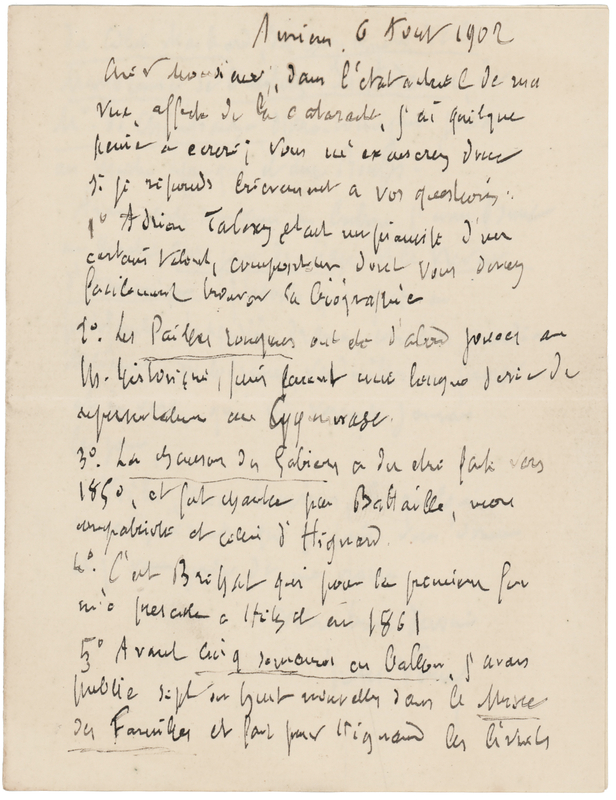 Amiens 6 Aout 1902
Cher Monsieur, dans l'état actuel de ma
vue, affectée de la cataracte, j'ai quelque
peine à écrire; vous m'excuserez donc
si je réponds brièvement à vos questions.
1° Adrien Talexy était un pianiste d'un
certain talent, compositeur dont vous devez
facilement trouver la biographie
2°. Les Pailles rompues ont été d'abord jouées au
Th. Historique, puis eurent une longue série de
représentations au Gymnase.
3°. La chanson des Gabiers a du être faite vers
1850, et fut chantée par Battaille, mon
compatriote et celui d'Hignard.
4°. C'est Bréhat qui pour la première fois
m'a présenté à Hetzel en 1861
5° Avant Cinq semaines en Ballon, j'avais
publié sept ou huit nouvelles dans le Musée
des Familles et fait pour Hignard les livrets